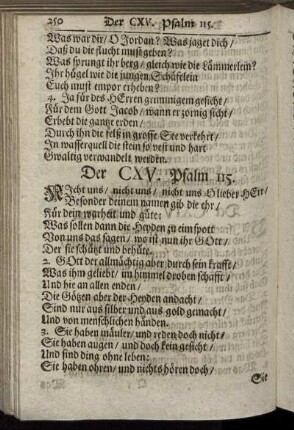 250 Der CXV. Psalm 115.
Was war dir/ O Jordan? Was jaget dich/
Daß du die flucht must geben?
Was sprungt ihr berg/ gleich wie die Lämmerlein?
Ihr hügel wie die jungen Schäfelein
Euch must empor erheben?
4. Ja für des HErren grimmigem gesicht/
Für dem Gott Jacob/ wann er zornig sicht/
Erbebt die gantze erden/
Durch ihn die felß in grosse See verkehrt/
In wasserquell die stein so vest und hart
Gwaltig verwandelt werden.
Der CXV. Psalm 115.
NIcht uns/ nicht uns/ nicht uns O lieber HErr/
Besonder deinem namen gib die ehr/
Für dein warheit und güte:
Was sollen dann die Heyden zu eim spott
Von uns das sagen/ wo ist nun ihr GOtt/
Der sie schütz und behüte.
2. GOtt der allmächtig aber durch sein krafft/
Was ihm geliebt/ im himmel droben schafft/
Und hie an allen enden/
Die Götzen aber der Heyden andacht/
Sind nur aus silber und aus gold gemacht/
Und von menschlichen händen.
3. Sie haben mäuler/ und reden doch nicht/
Sie haben augen/ und doch kein gesicht/
Und sind ding ohne leben:
Sie haben ohren/ und nichts hören doch/
Sie